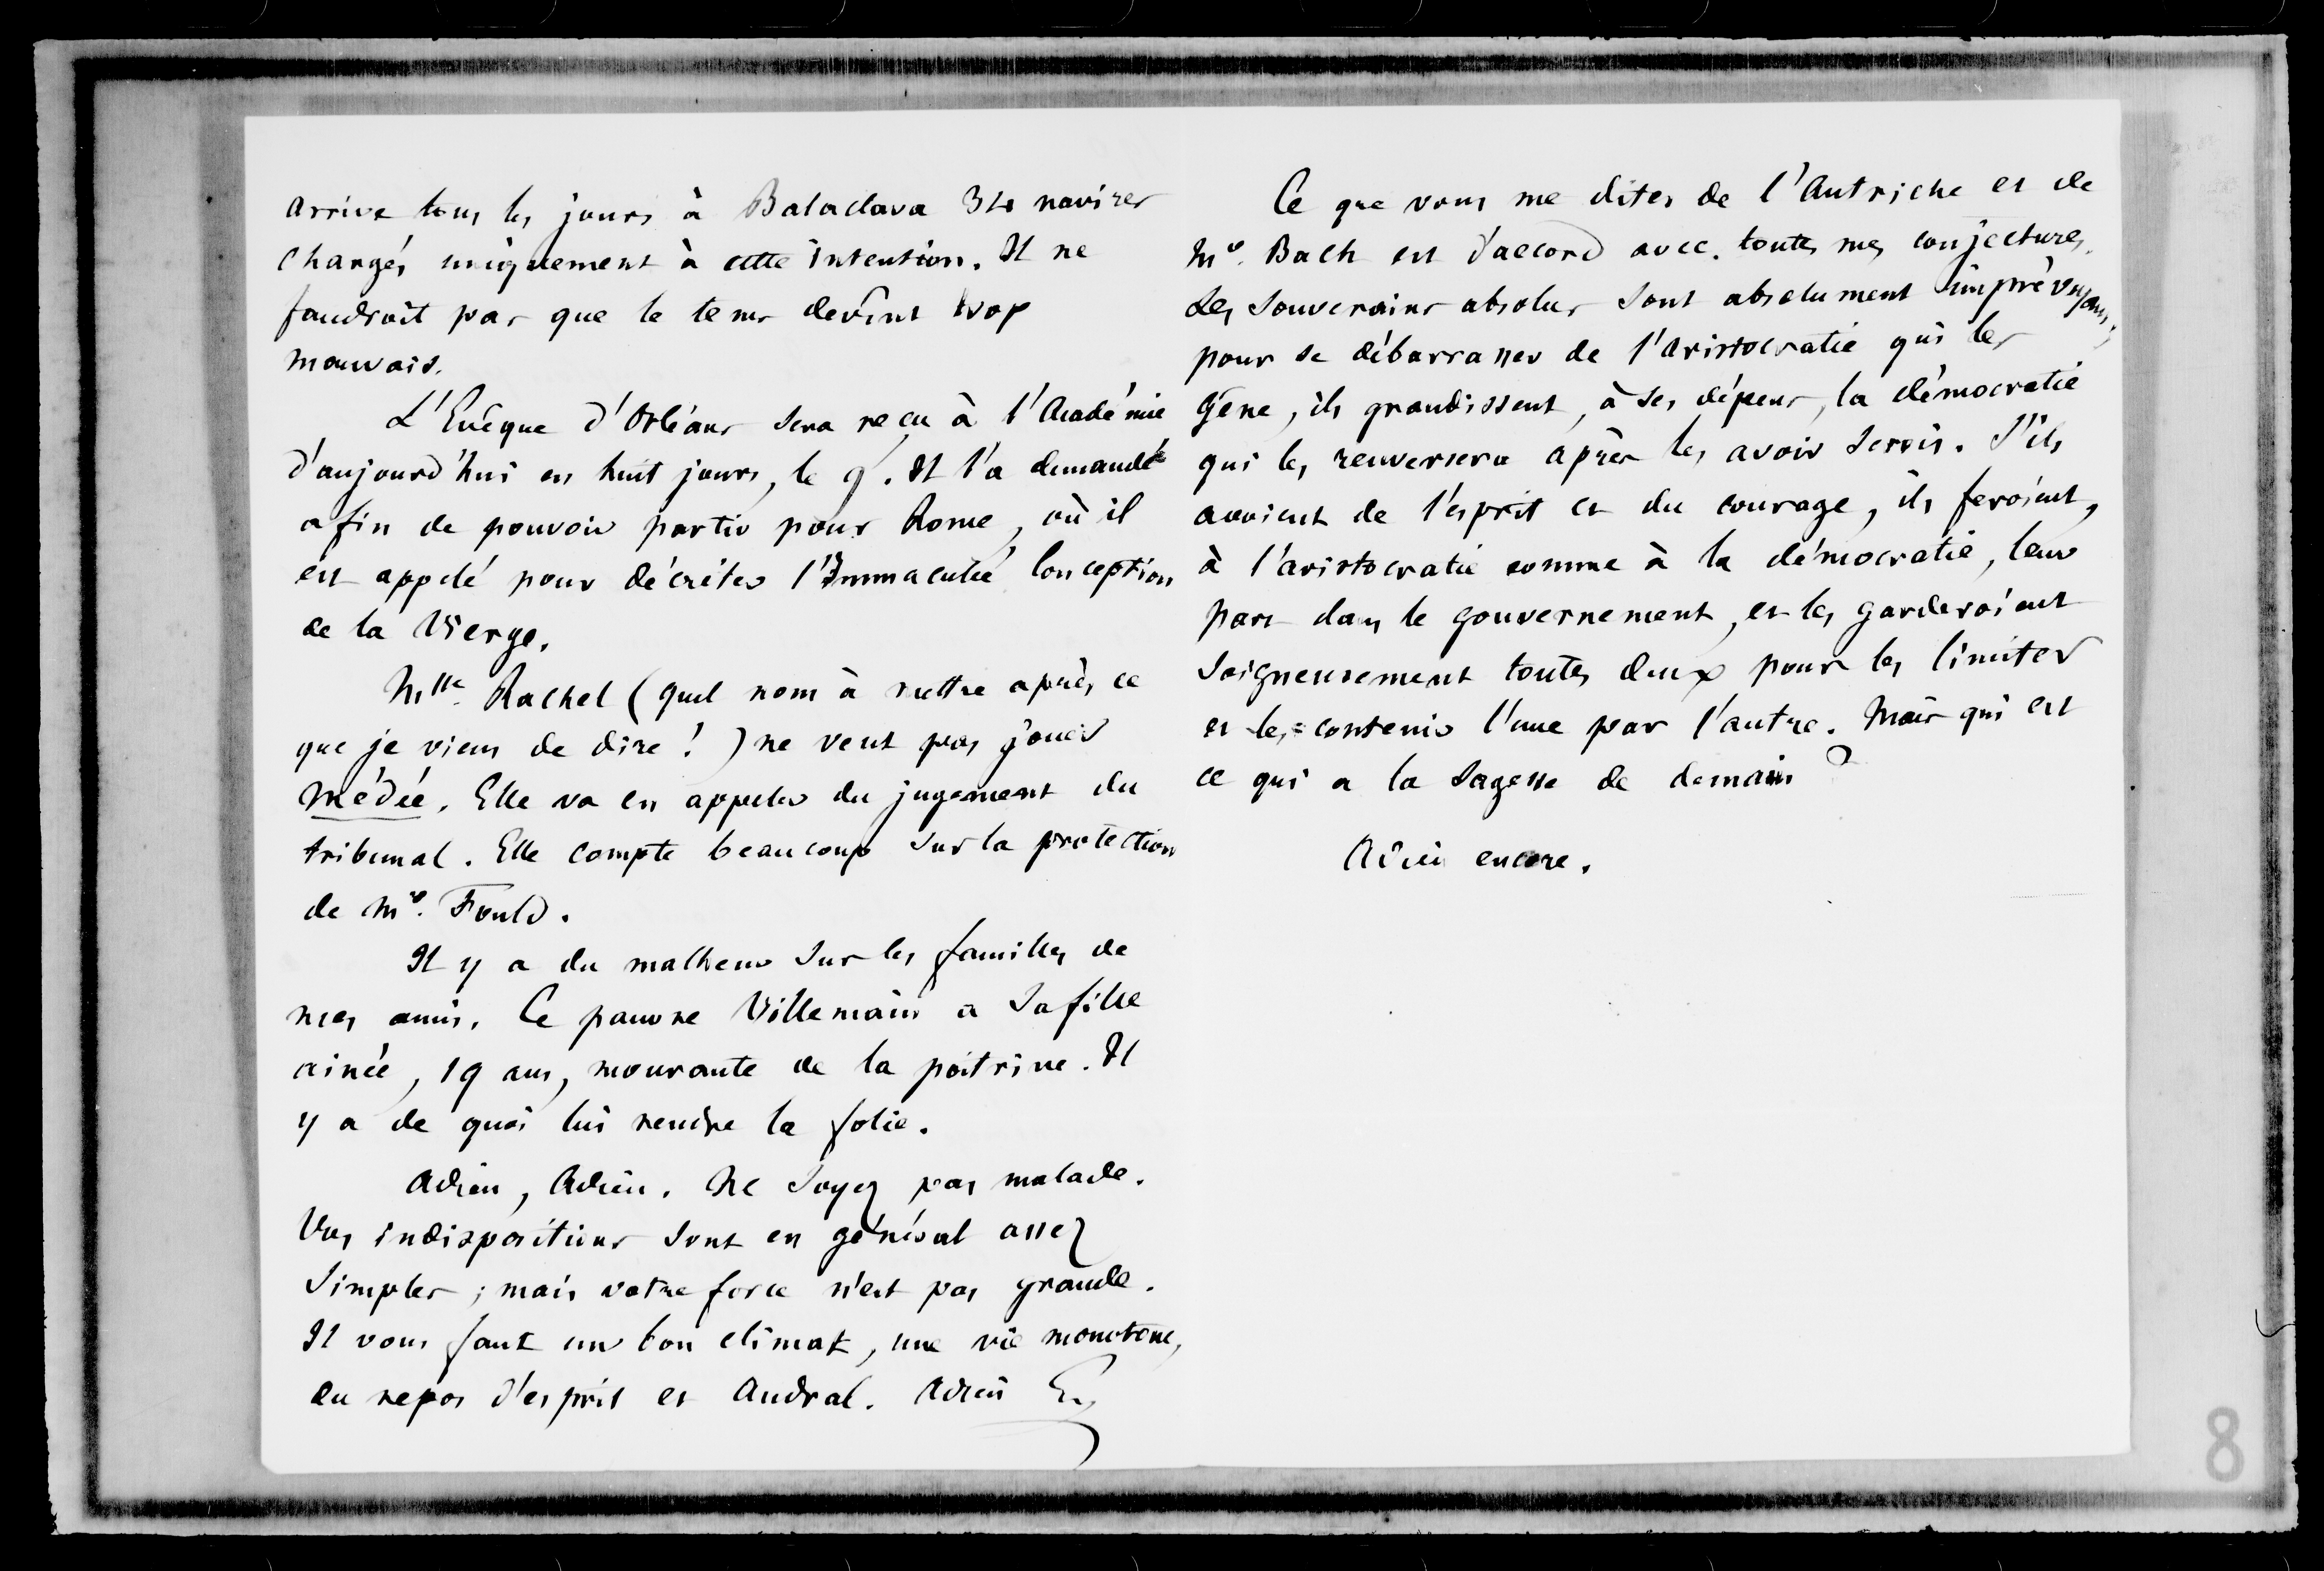 arrive tous les jours à Balaclava 3 ou 4 navires
chargés uniquement à cette intention. Il ne
faudroit pas que le tems devînt trop
mauvais.
L'Evêque d'Orléans sera reçu à l'Académie
d'aujourd'hui en huit jours, le 9. Il l'a demandé
afin de pouvoir partir pour Rome, où il
est appelé pour décréter l'Immaculée Conception
de la Vierge.
Mlle Rachel (quel nom à mettre après ce
que je viens de dire !) ne veut pas jouer
Médée. Elle va en appeler du jugement du
tribunal. Elle compte beaucoup sur la protection
de Mr. Fould.
Il y a du malheur sur les familles de
mes amis. Ce pauvre Villemain a sa fille
ainée, 19 ans, mourante de la poitrine. Il
y a de quoi lui rendre la folie.
Adieu, Adieu. Ne soyez pas malade.
Vos indispositions sont en général assez
simples ; mais votre force n'est pas grande.
Il vous faut un bon climat, une vie monotone,
du repos d'esprit et Andral. Adieu G
Ce que vous me dites de l'Autriche et de
Mr. Bach est d'accord avec toutes mes conjectures.
Les souverains absolus sont absolument imprévoyans ;
pour se débarrasser de l'aristocratie qui les
gêne, ils grandissent, à ses dépens, la démocratie
qui les renversera après les avoir servis. S'ils
avoient de l'esprit et du courage, ils feroient,
à l'aristocratie comme à la démocratie, leur
part dans le gouvernement, et les garderoient
soigneusement toutes deux pour les limiter
et les contenir l'une par l'autre. Mais qui est
ce qui a la sagesse de demain ?
Adieu encore.
8